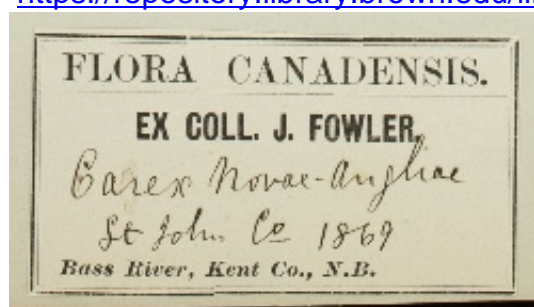 FLORA CANADENSIS.
EX COLL. J. FOWLER,
Carex Novae-Angliae
St John Co 1869
Bass River, Kent Co., N.B.